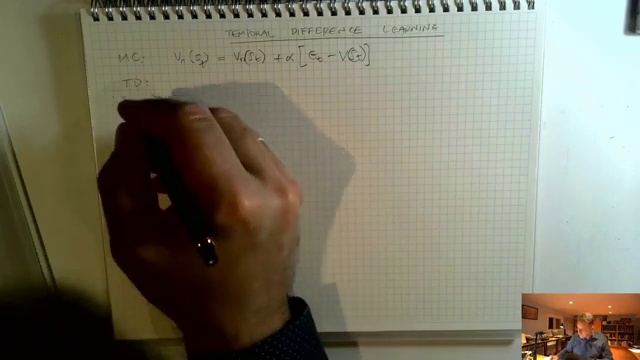 TEMPORAL DIFFERENCE LEARNING
MC: Vπ(St) = Vπ(St) + α [Gt − V(St)]
TD: